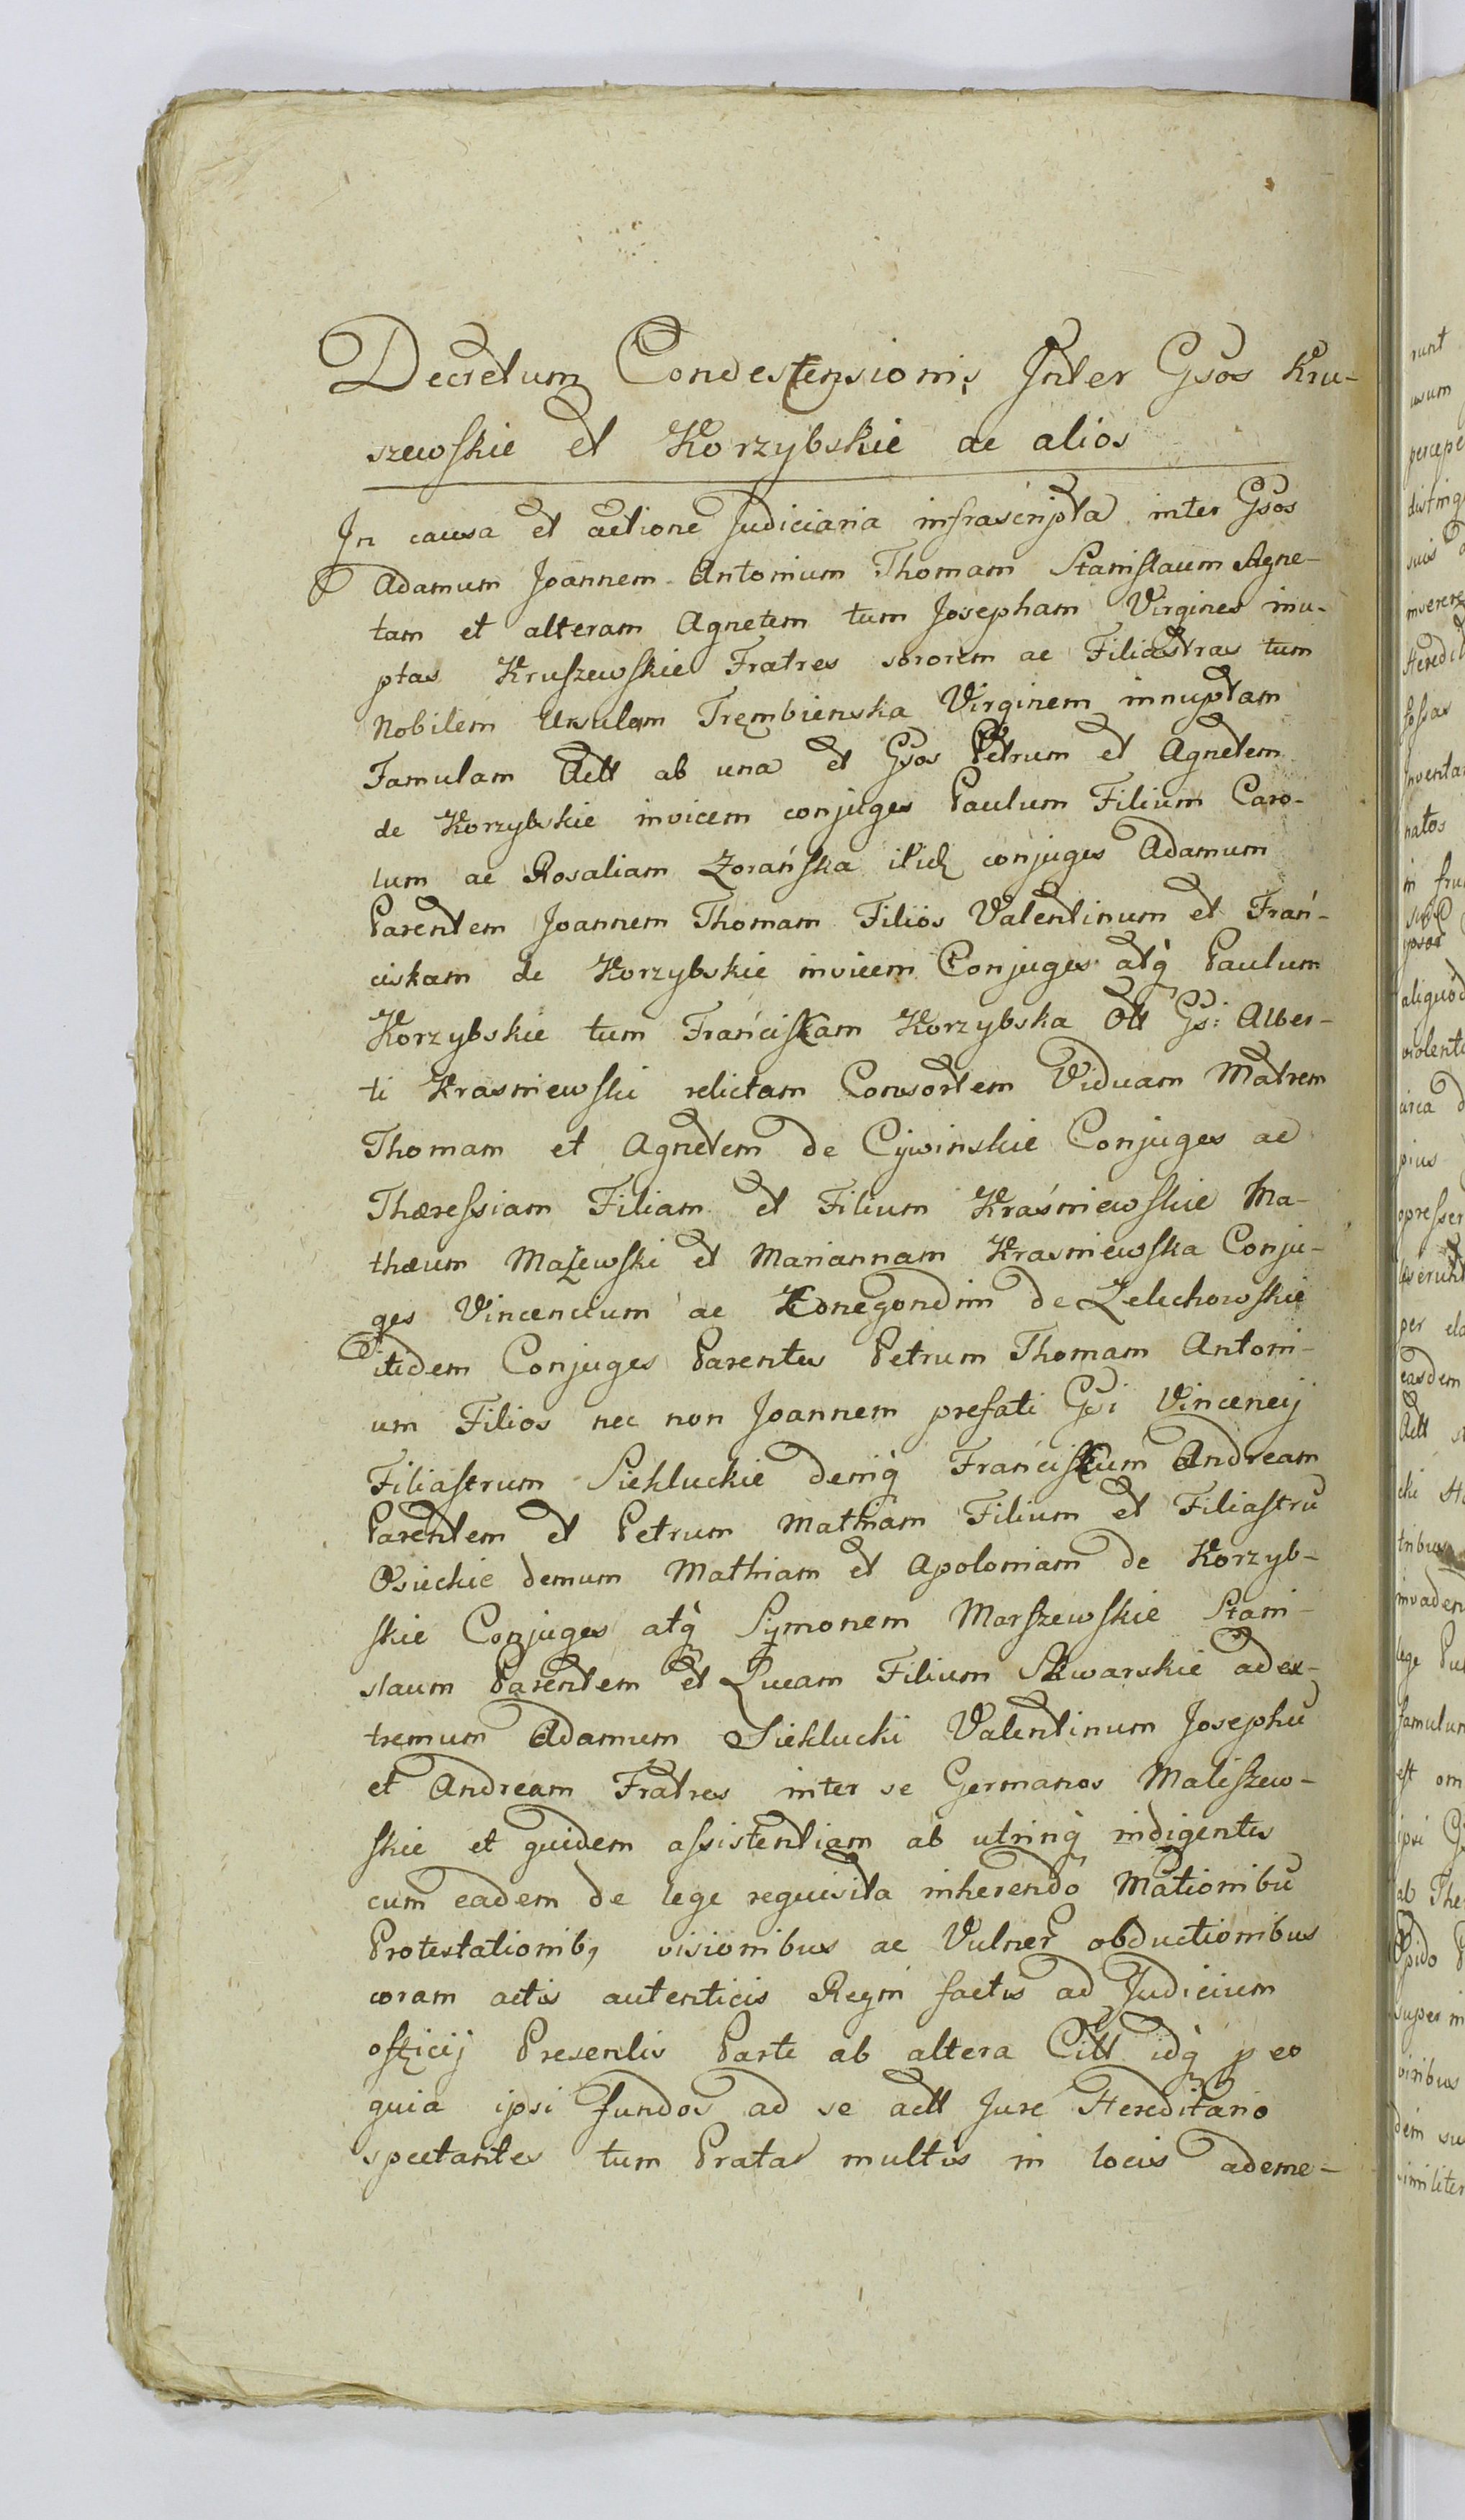 Decretum Condestensionis Inter Gsos Kru-
szewskie et Korzybskie ac alios
In causa et actione Judiciaria infrascripta inter Gsos
Adamum Joannem Antonium Thomam Stanislaum Agne-
tam et alteram Agnetem tum Josepham Virgines inu-
ptas Kruszewskie Fratres sororem ac Filiastras tum
Nobilem Ursulam Trembienska Virginem innuptam
Famulam Actt ab una et Gsos Petrum et Agnetem
de Korzybskie invicem conjuges Paulum Filium Caro-
lum ac Rosaliam Zorańska itid conjuges Adamum
Parentem Joannem Thomam Filios Valentinum et Frań-
ciskam de Korzybskie invicem Conjuges atq Paulum
Korzybskie tum Frańciskam Korzybska Ott Gsi: Alber-
ti Krasniewski relictam Consortem Viduam Matrem
Thomam et Agnetem de Cywinskie Conjuges ac
Thæressiam Filiam et Filium Kraśniewskie Ma-
thæum Mażewski et Mariannam Krasniewska Conju-
ges Vincentium ac Konegondim de Zelechowskie
itidem Conjuges Parentes Petrum Thomam Antoni-
um Filios nec non Joannem prefati Gsi Vincencij
Filiastrum Siekluckie deniq Frańciskum Andream
Parentem et Petrum Mathiam Filium et Filiastrū
Osieckie demum Mathiam et Apoloniam de Korzyb-
skie Conjuges atq Symonem Marszewskie Stani-
slaum Parentem et Lucam Filium Skwarskie ad ex-
tremum Adamum Sieklucki Valentinum Josephū
et Andream Fratres inter se Germanos Maliszew-
skie et quidem assistentiam ab utrinq indigentes
cum eadem de lege requisita inherendo Mationibū
Protestationib, visionibus ac Vulner obductionibus
coram actis autenticis Regni factis ad Judicium
officij Presentis Parte ab altera Citt idq p eo
quia ipsi fundos ad se actt Jure Hereditario
spectantes tum Prata multis in locis ademe-